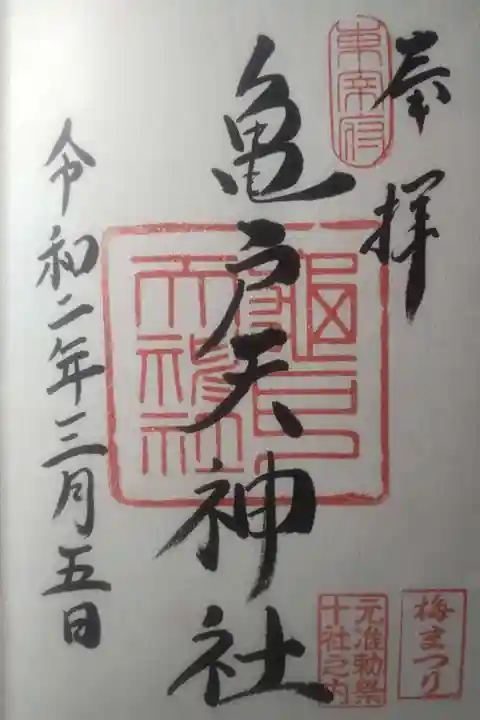 奉拝
東宰府
亀戸天神社
龜戸天神社
令和二年三月五日
梅まつり
元准勅祭
十社之内